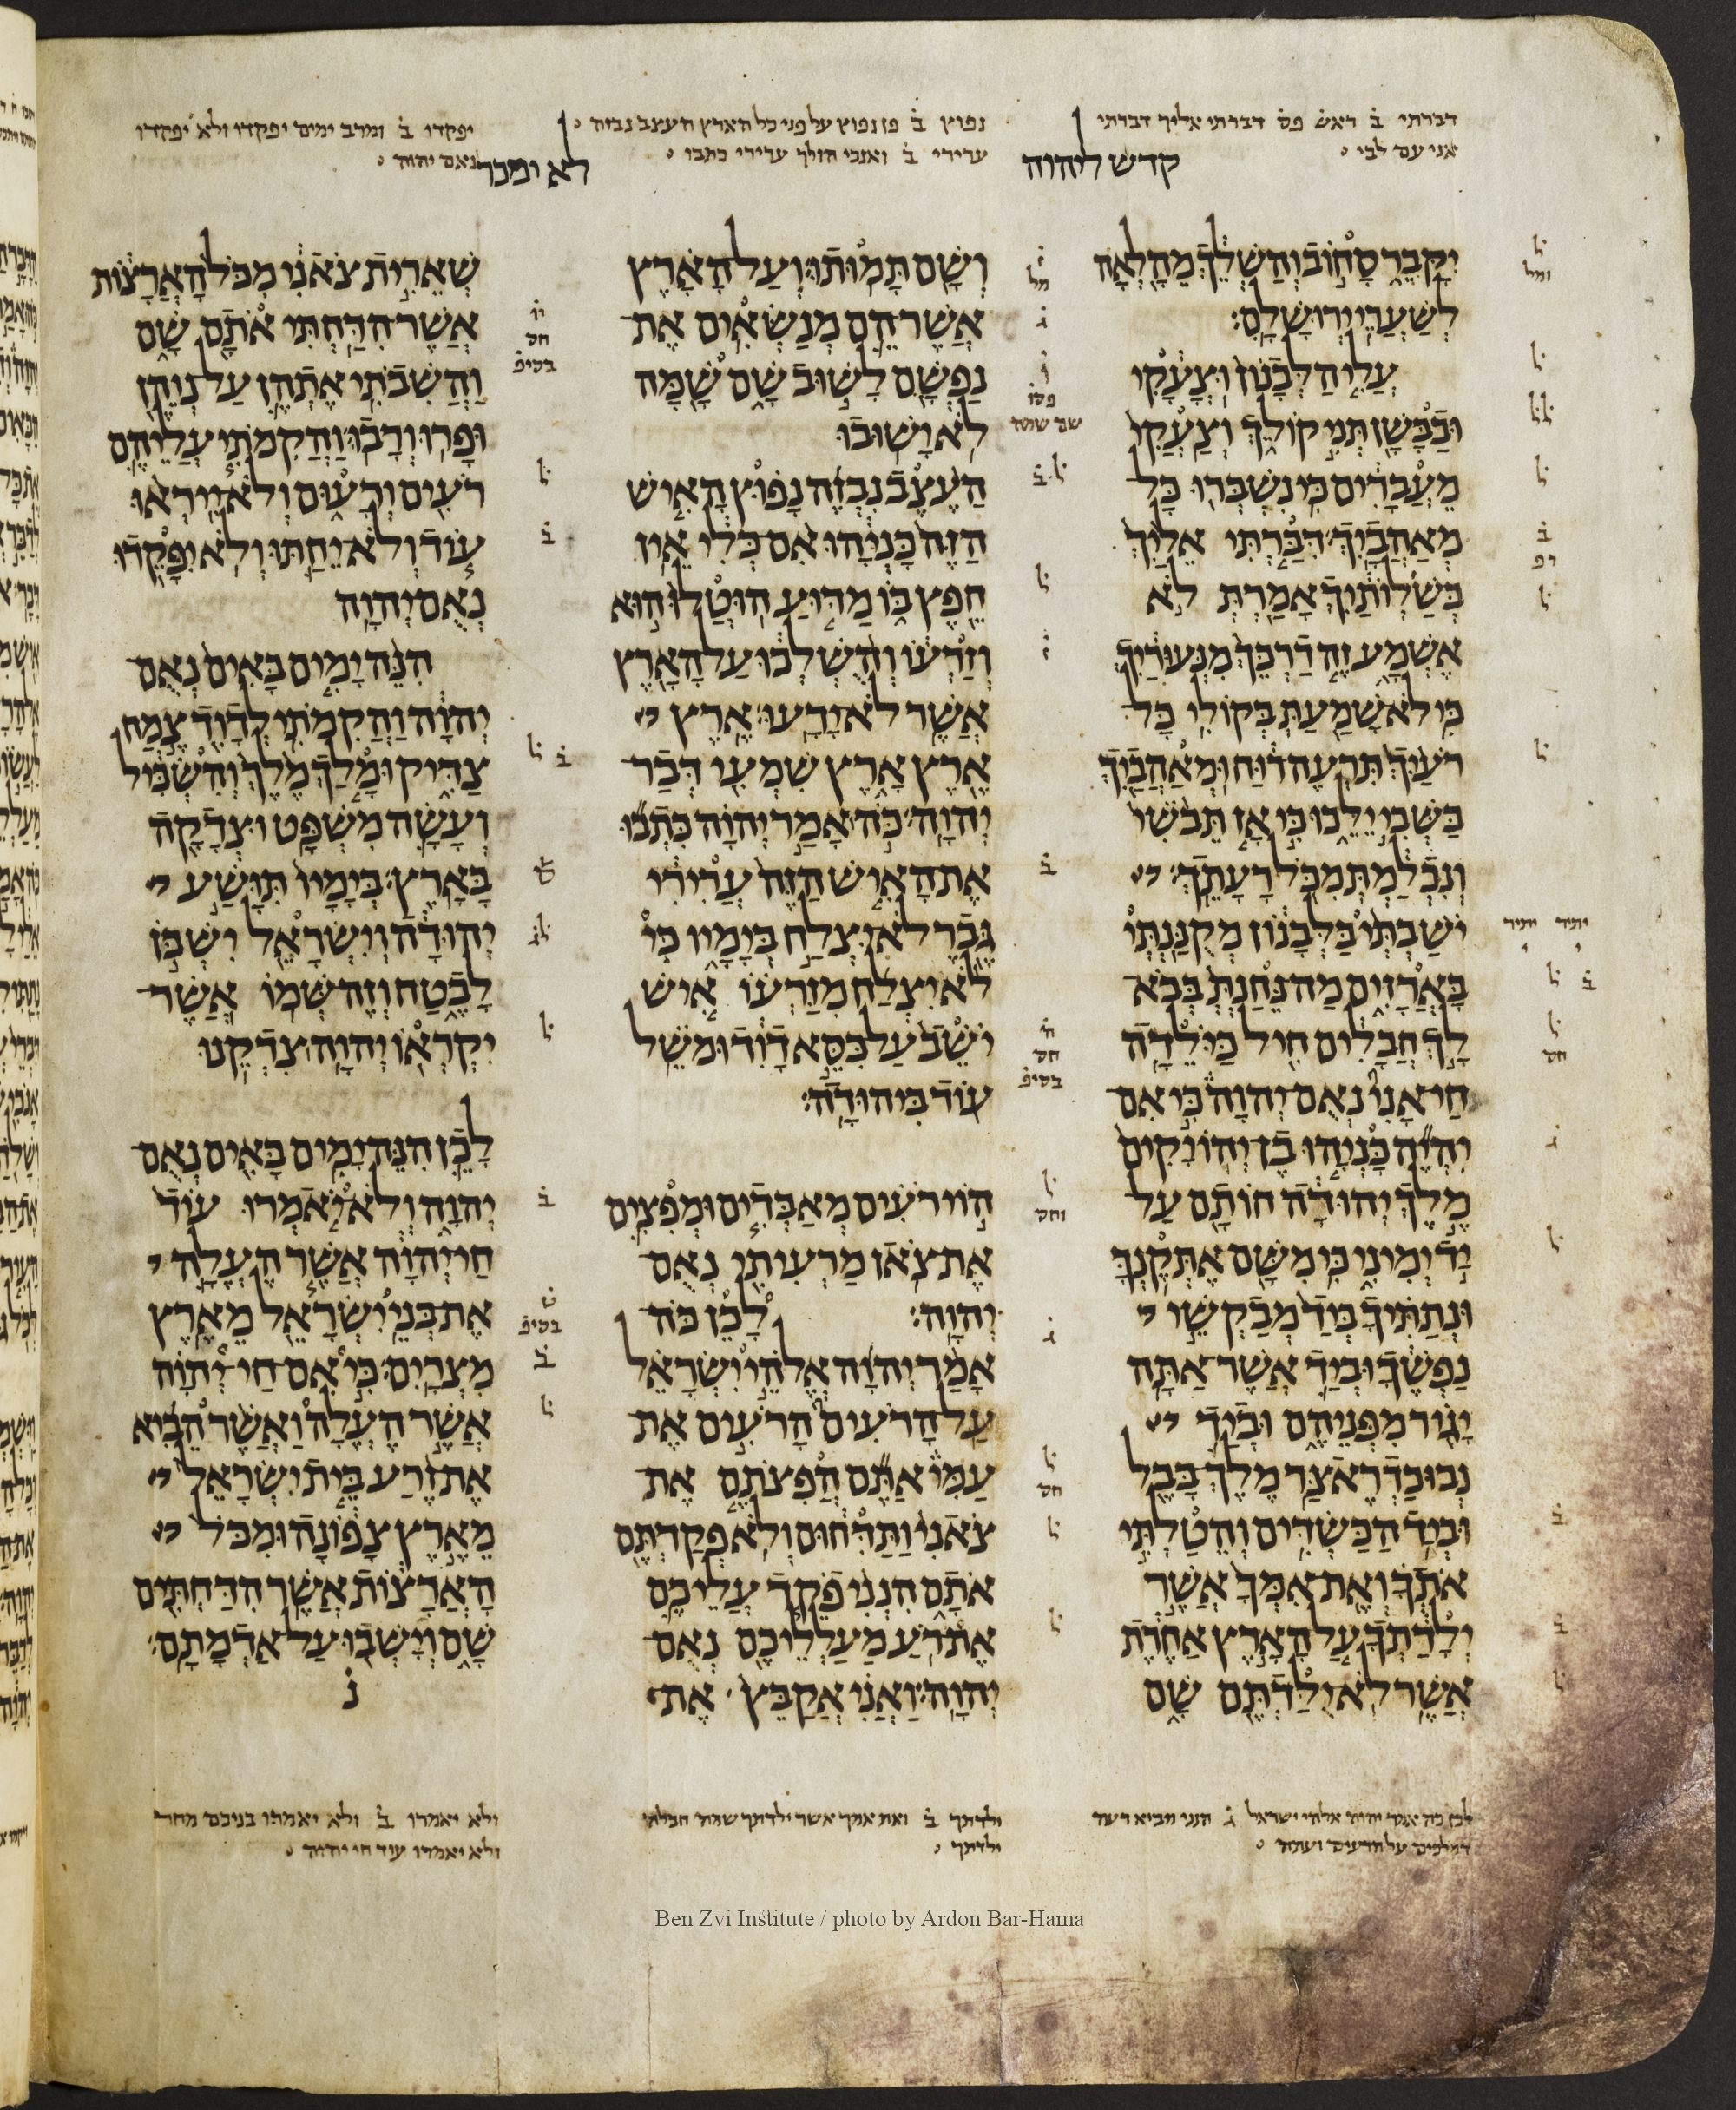 דברתי ב ראש פס דברתי אליך דברתי
אני עם לבי
קדש ליהוה
נפוץ ב פן נפוץ על פני כל הארץ העצב נבזה
ערירי ב ואנכי הולך ערירי כתבו
לא ימכר
יפקדו ב ומרב ימים יפקדו ולא יפקדו
נאם יהוה
יקבר סחוב והשלך מהלאה
לשערי ירושלם׃
עלי הלבנון וצעקי
ובבשן תני קולך וצעקי
מעברים כי נשברו כל
מאהביך׃ דברתי אליך
בשלותיך אמרת לא
אשמע זה דרכך מנעוריך
כי לא שמעת בקולי׃ כל
רעיך תרעה רוח ומאהביך
בשבי ילכו כי אז תבשי
ונכלמת מכל רעתך׃
ישבתי בלבנון מקננתי
בארזים מה נחנת בבא
לך חבלים חיל כילדה׃
חי אני נאם יהוה כי אם
יהיה כניהו בן יהויקים
מלך יהודה חותם על
יד ימיני כי משם אתקנך׃
ונתתיך ביד מבקשי
נפשך וביד אשר אתה
יגור מפניהם וביד
נבוכדראצר מלך בבל
וביד הכשדים׃ והטלתי
אתך ואת אמך אשר
ילדתך על הארץ אחרת
אשר לא ילדתם שם
ושם תמותו׃ ועל הארץ
אשר הם מנשאים את
נפשם לשוב שם שמה
לא ישובו׃
העצב נבזה נפוץ האיש
הזה כניהו אם כלי אין
חפץ בו מדוע הוטלו הוא
וזרעו והשלכו על הארץ
אשר לא ידעו׃ ארץ
ארץ ארץ שמעי דבר
יהוה׃ כה אמר יהוה כתבו
את האיש הזה ערירי
גבר לא יצלח בימיו כי
לא יצלח מזרעו איש
ישב על כסא דוד ומשל
עוד ביהודה׃
הוי רעים מאבדים ומפצים
את צאן מרעיתי נאם
יהוה׃ לכן כה
אמר יהוה אלהי ישראל
על הרעים הרעים את
עמי אתם הפצתם את
צאני ותדחום ולא פקדתם
אתם הנני פקד עליכם
את רע מעלליכם נאם
יהוה׃ ואני אקבץ את
שארית צאני מכל הארצות
אשר הדחתי אתם שם
והשבתי אתהן על נוהן
ופרו ורבו׃ והקמתי עליהם
רעים ורעום ולא ייראו
עוד ולא יחתו ולא יפקדו
נאם יהוה׃
הנה ימים באים נאם
יהוה והקמתי לדוד צמח
צדיק ומלך מלך והשכיל
ועשה משפט וצדקה
בארץ׃ בימיו תושע
יהודה וישראל ישכן
לבטח וזה שמו אשר
יקראו יהוה צדקנו׃
לכן הנה ימים באים נאם
יהוה ולא יאמרו עוד
חי יהוה אשר העלה
את בני ישראל מארץ
מצרים׃ כי אם חי יהוה
אשר העלה ואשר הביא
את זרע בית ישראל
מארץ צפונה ומכל
הארצות אשר הדחתים
שם וישבו על אדמתם׃
לכן כה אמר יהוה אלהי ישראל ג הנני מביא רעה
ילדתך ב ואת אמך אשר ילדתך שמה חבלתך
ילדתך
ולא יאמרו ב ולא יאמרו בניכם מחר
ולא יאמרו עוד חי יהוה
Ben Zvi Institute / photo by Ardon Bar-Hama